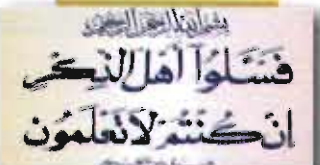 بسم الله الرحمن الرحيم
فَسْـَٔلُوٓا۟ أَهْلَ ٱلذِّكْرِ
إِن كُنتُمْ لَا تَعْلَمُونَ